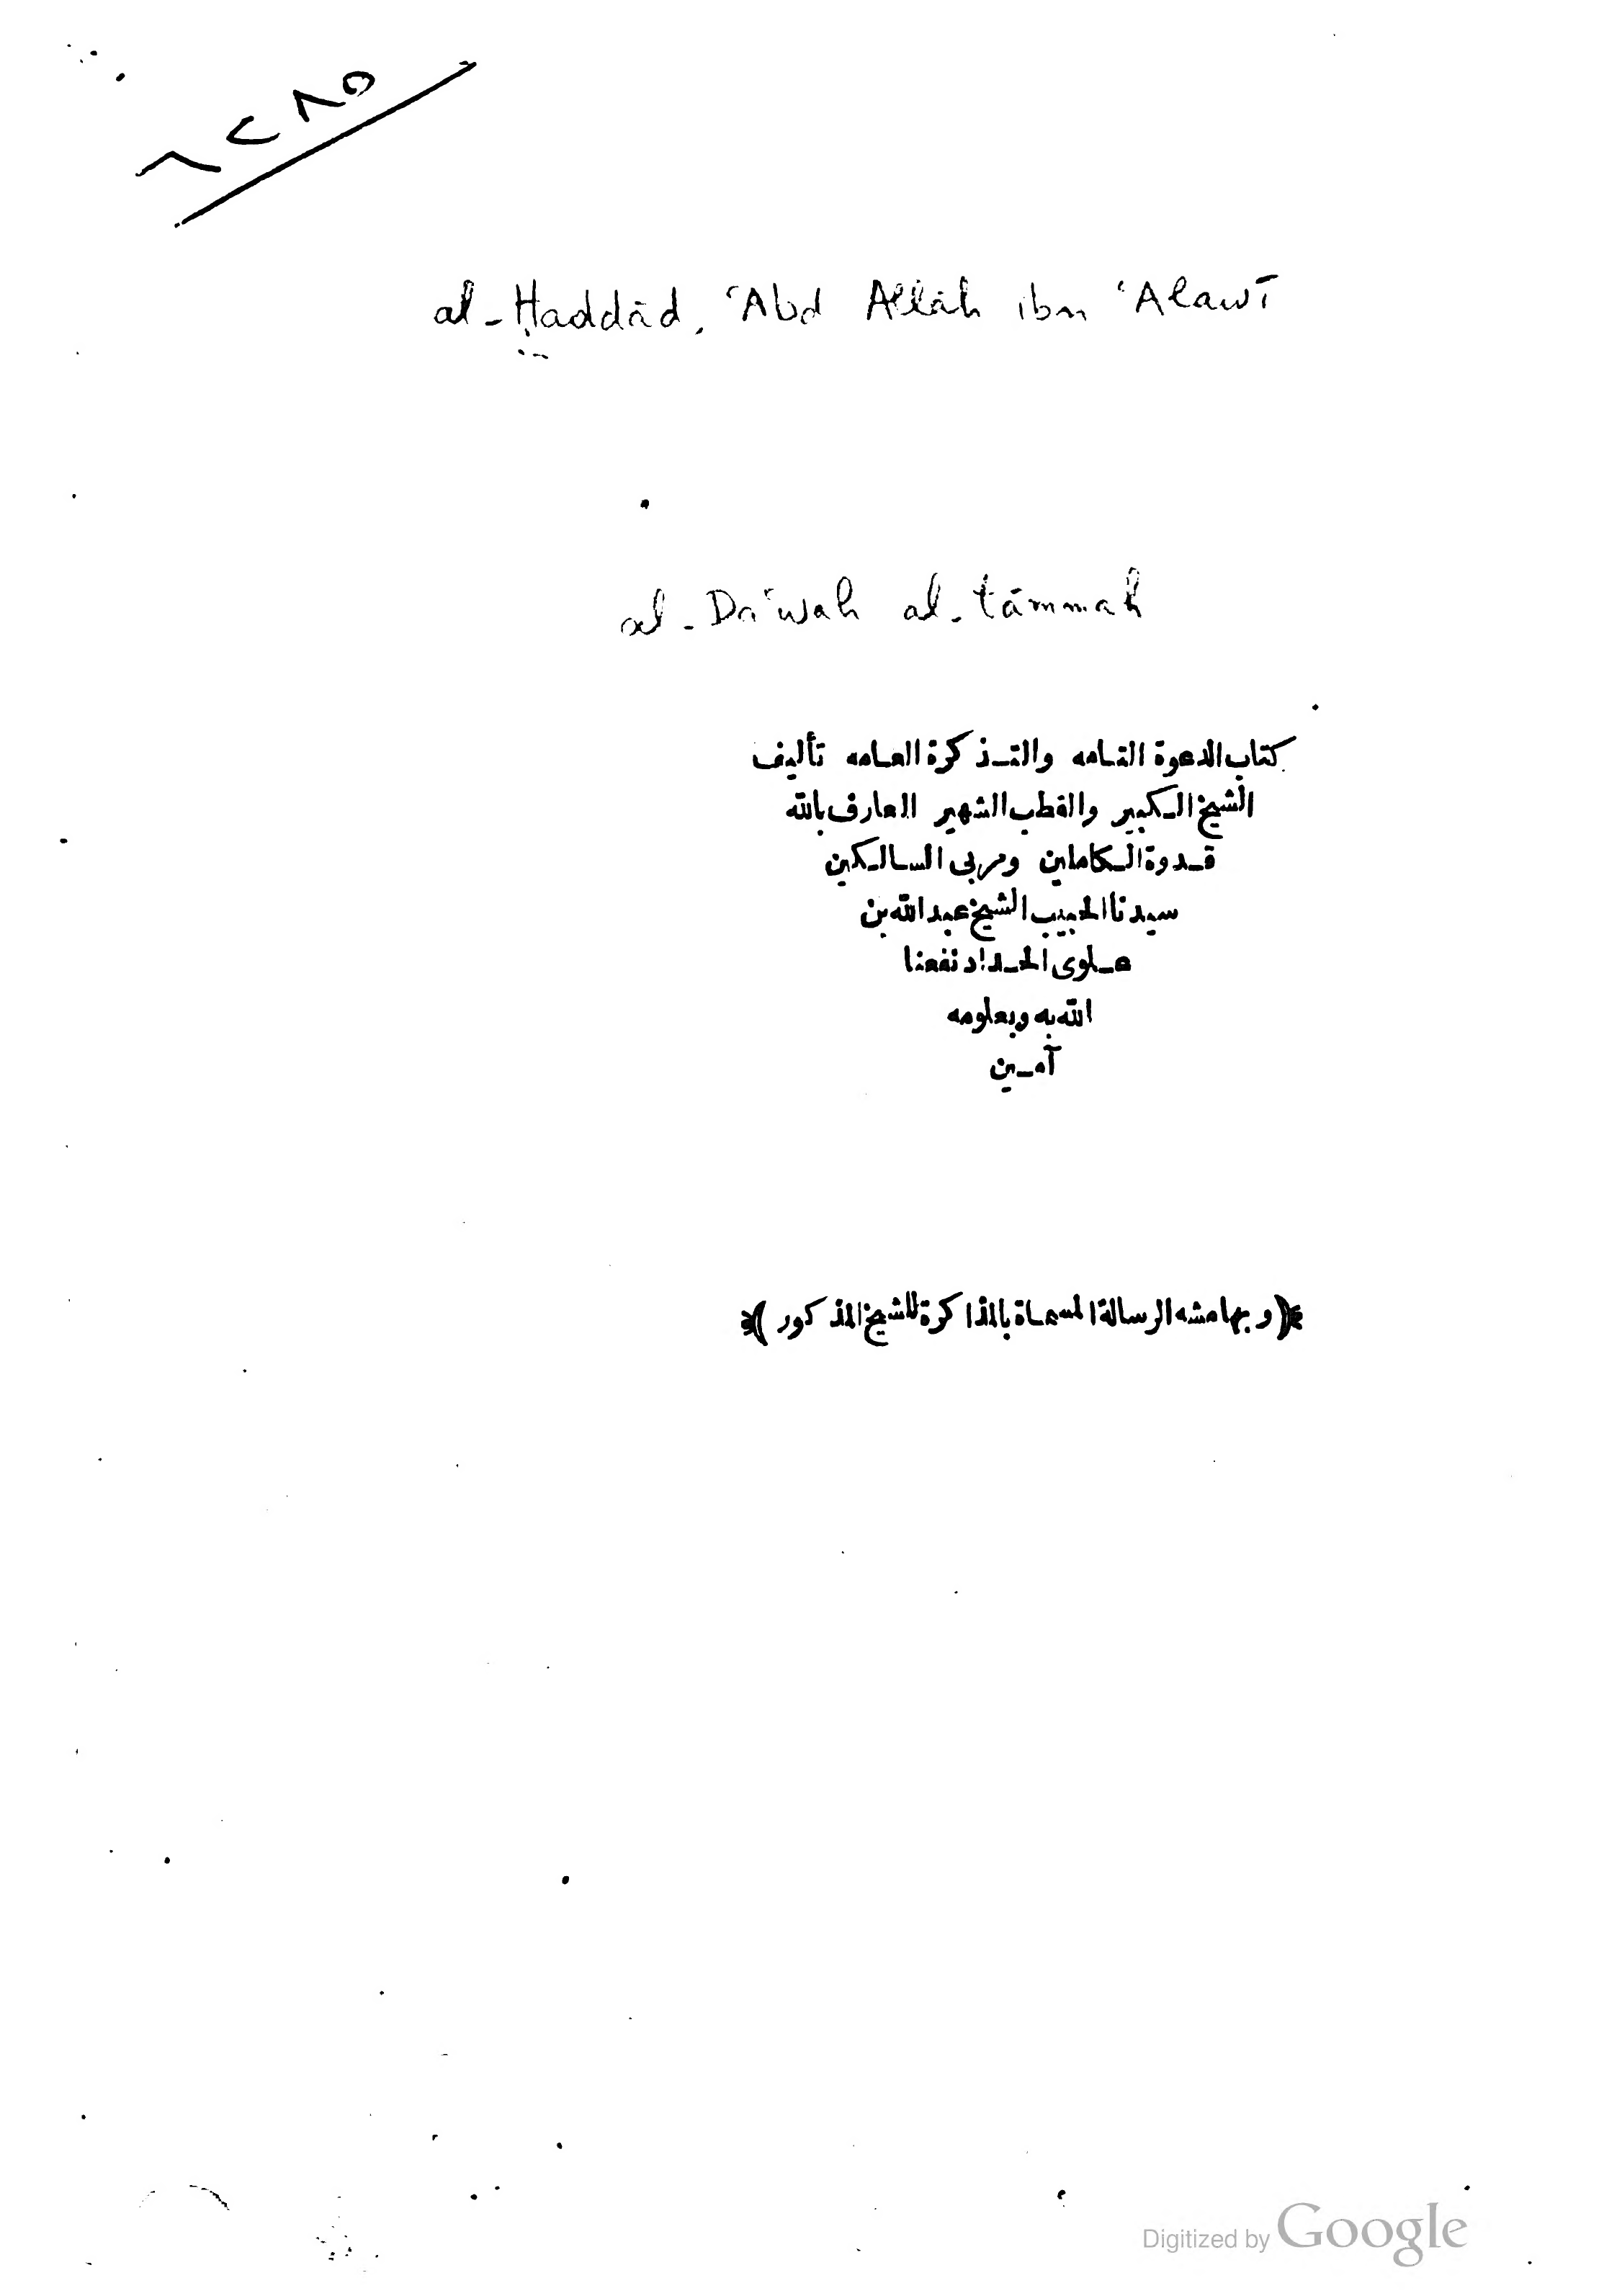 al-Ḥaddād, ʿAbd Allāh ibn ʿAlawī
al-Daʿwah al-tāmmah
كتاب الدعوة التامه والتذكرة العامه تأليف
الشيخ الكبير والقطب الشهير العارف بالله
قدوة الكاملين ومربى السالكين
سيدنا الحبيب الشيخ عبد الله بن
علوى الحداد نفعنا
الله به وبعلومه
آمين
﴿وبهامشه الرسالة المسماة بالمذاكرة للشيخ المذكور﴾
Digitized by Google